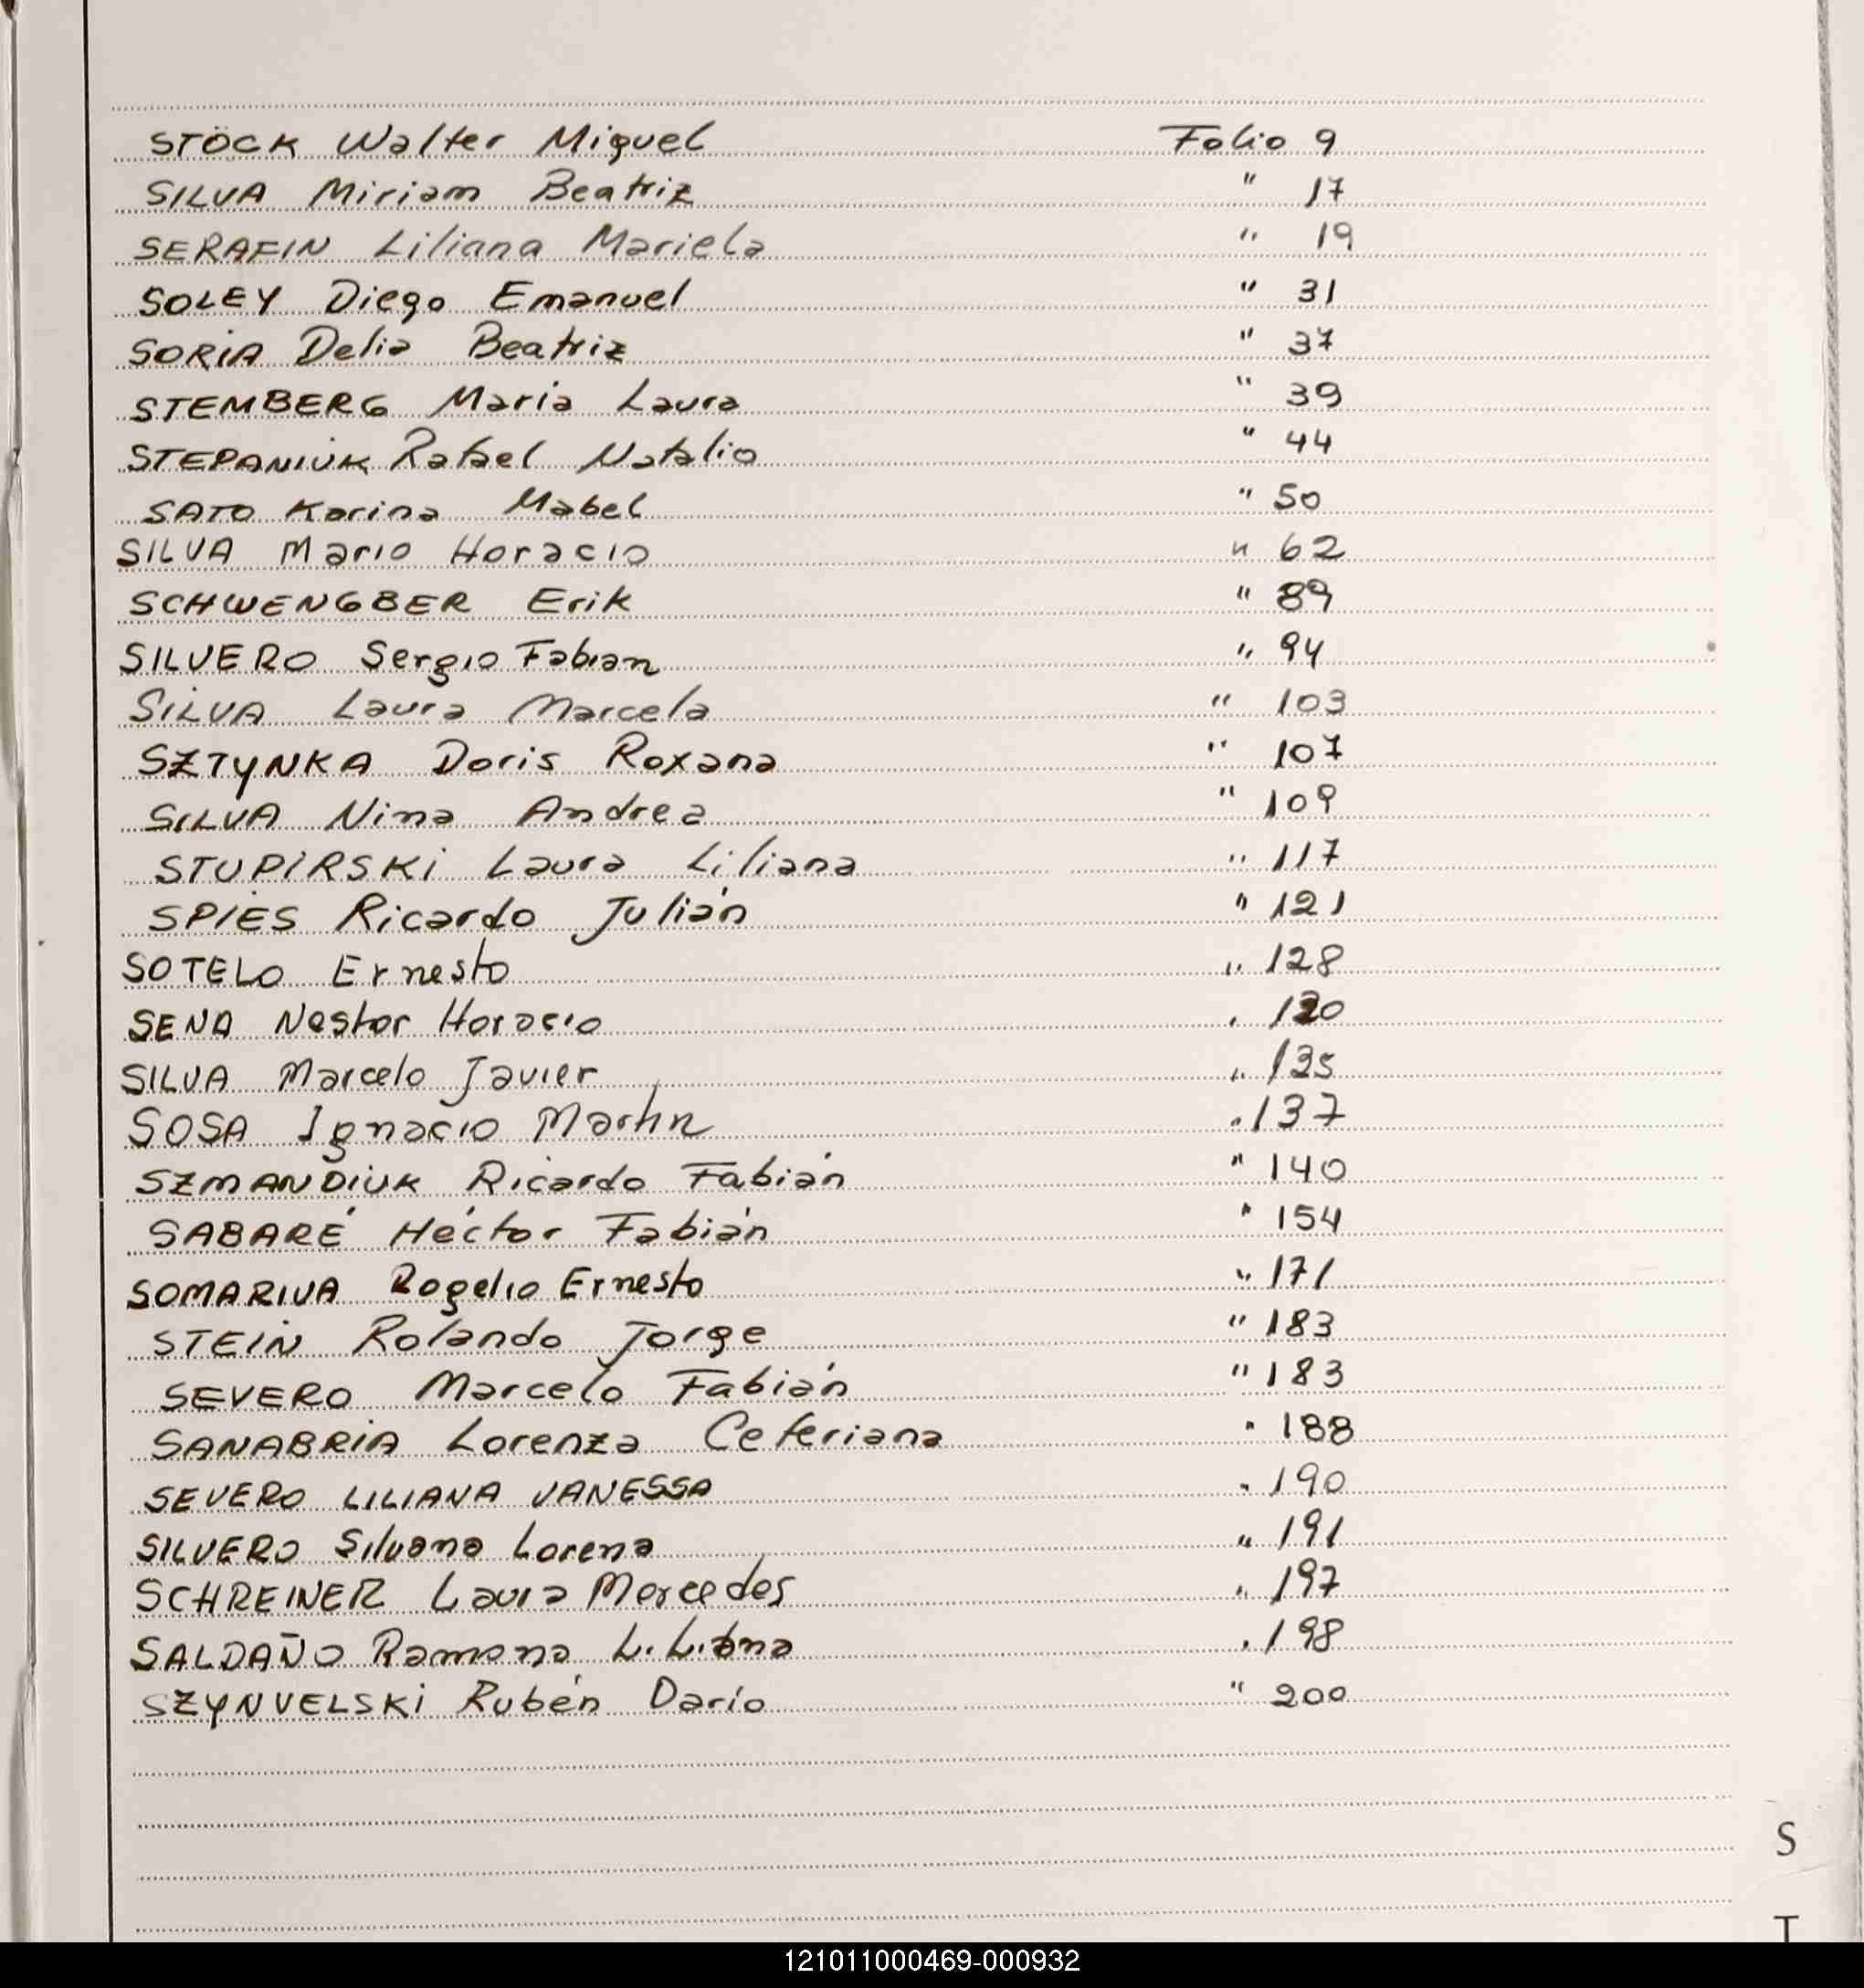 STÖCK Walter Miguel Folio 9
SILVA Miriam Beatriz " 17
SERAFIN Liliana Mariela " 19
SOLEY Diego Emanuel " 31
SORIA Delia Beatriz " 37
STEMBERG María Laura " 39
STEPANIUK Rafael Natalio " 44
SATO Karina Mabel " 50
SILVA Mario Horacio " 62
SCHWENGBER Erik " 89
SILVERO Sergio Fabian " 94
SILVA Laura Marcela " 103
SZTYNKA Doris Roxana " 107
SILVA Nina Andrea " 109
STUPIRSKI Laura Liliana " 117
SPIES Ricardo Julián " 121
SOTELO Ernesto " 128
SENA Nestor Horacio "
SILVA Marcelo Javier " 135
SOSA Ignacio Martin " 137
SZMANDIUK Ricardo Fabián " 140
SABARÉ Héctor Fabián " 154
SOMARIVA Rogelio Ernesto " 171
STEIN Rolando Jorge " 183
SEVERO Marcelo Fabián " 183
SANABRIA Lorenza Ceferiana " 188
SEVERO LILIANA VANESSA " 190
SILVERO Silvana Lorena " 191
SCHREINER Laura Mercedes " 197
SALDAÑO Ramona Liliana " 198
SZYNVELSKI Rubén Darío " 200
S
T
121011000469-000932